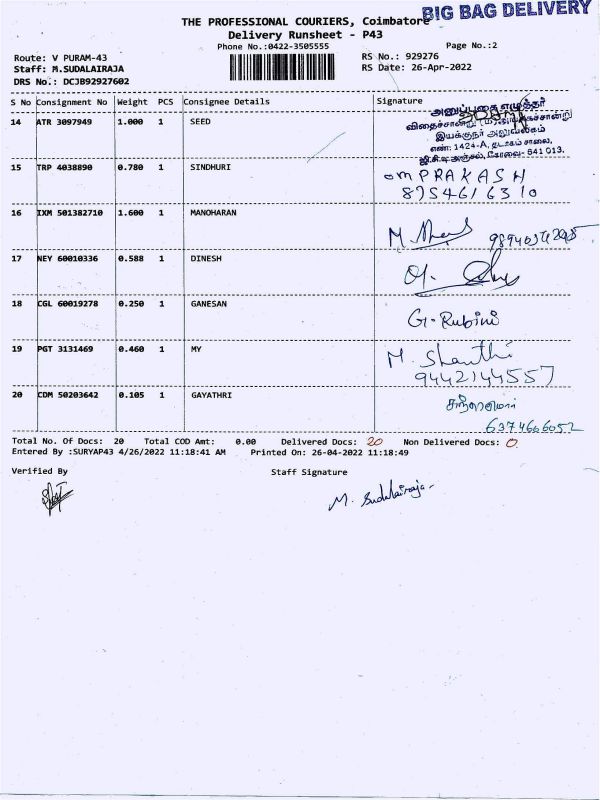 BIG BAG DELIVERY
THE PROFESSIONAL COURIERS, Coimbatore
Delivery Runsheet - P43
Phone No.:0422-3505555
Page No.:2
Route: V PURAM-43
RS No.: 929276
Staff: M.SUDALAIRAJA
RS Date: 26-Apr-2022
DRS No.: DCJB92927602
S No Consignment No Weight PCS Consignee Details Signature
14 ATR 3097949 1.000 1 SEED
அனுப்புகை எழுத்தர்
இயக்குநர் அலுவலகம்
எண்: 1424-A, தடாகம் சாலை,
ஜி.சி.டி அஞ்சல், கோவை- 641 013.
15 TRP 4038890 0.780 1 SINDHURI
om PRAKASH
8754616310
16 IXM 501382710 1.600 1 MANOHARAN
17 NEY 60010336 0.588 1 DINESH
18 CGL 60019278 0.250 1 GANESAN
G. Rubini
19 PGT 3131469 0.460 1 MY
M. Shanthi
9442144557
20 CDM 50203642 0.105 1 GAYATHRI
6374606052
Total No. Of Docs: 20 Total COD Amt: 0.00 Delivered Docs: 20 Non Delivered Docs: 0
Entered By :SURYAP43 4/26/2022 11:18:41 AM Printed On: 26-04-2022 11:18:49
Verified By Staff Signature
M. Sudalairaja